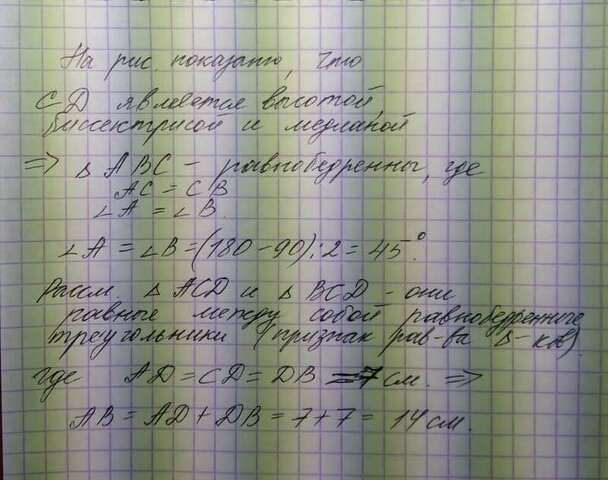 На рис. показано, что
CD является высотой,
биссектрисой и медианой
=> △ ABC - равнобедренный, где
AC = CB
∠A = ∠B.
∠A = ∠B = (180 - 90) : 2 = 45°.
Рассм. △ ACD и △ BCD - они
равные между собой равнобедренные
треугольники (признак рав-ва △-ков)
где AD = CD = DB = 7 см. =>
AB = AD + DB = 7 + 7 = 14 см.